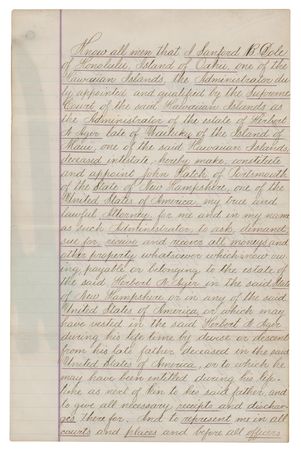 Know all men that I Sanford B Dole
of Honolulu, Island of Oahu, one of the
Hawaiian Islands, the Administrator du
ly appointed and qualified by the Supreme
Court of the said Hawaiian Islands as
the Administrator of the estate of Herbert
A Ager late of Wailuku of the Island of
Maui, one of the said Hawaiian Islands,
deceased intestate, hereby make, constitute
and appoint John Hatch of Portsmouth
of the State of New Hampshire, one of the
United States of America, my true and
lawful Attorney for me and in my name
as such Administrator, to ask, demand,
sue for, receive and recover all moneys and
other property whatsoever which now ow
ing, payable or belonging to the estate of
the said Herbert A. Ager in the said State
of New Hampshire or in any of the said
United States of America or which may
have vested in the said Herbert A Ager
during his life time by devise or descent
from his late father deceased in the said
United States of America, or to which he
may have been entitled during his life-
time as next of Kin to his said father, and
to give all necessary receipts and dischar
ges there for. And to represent me in all
courts and places and before all officers